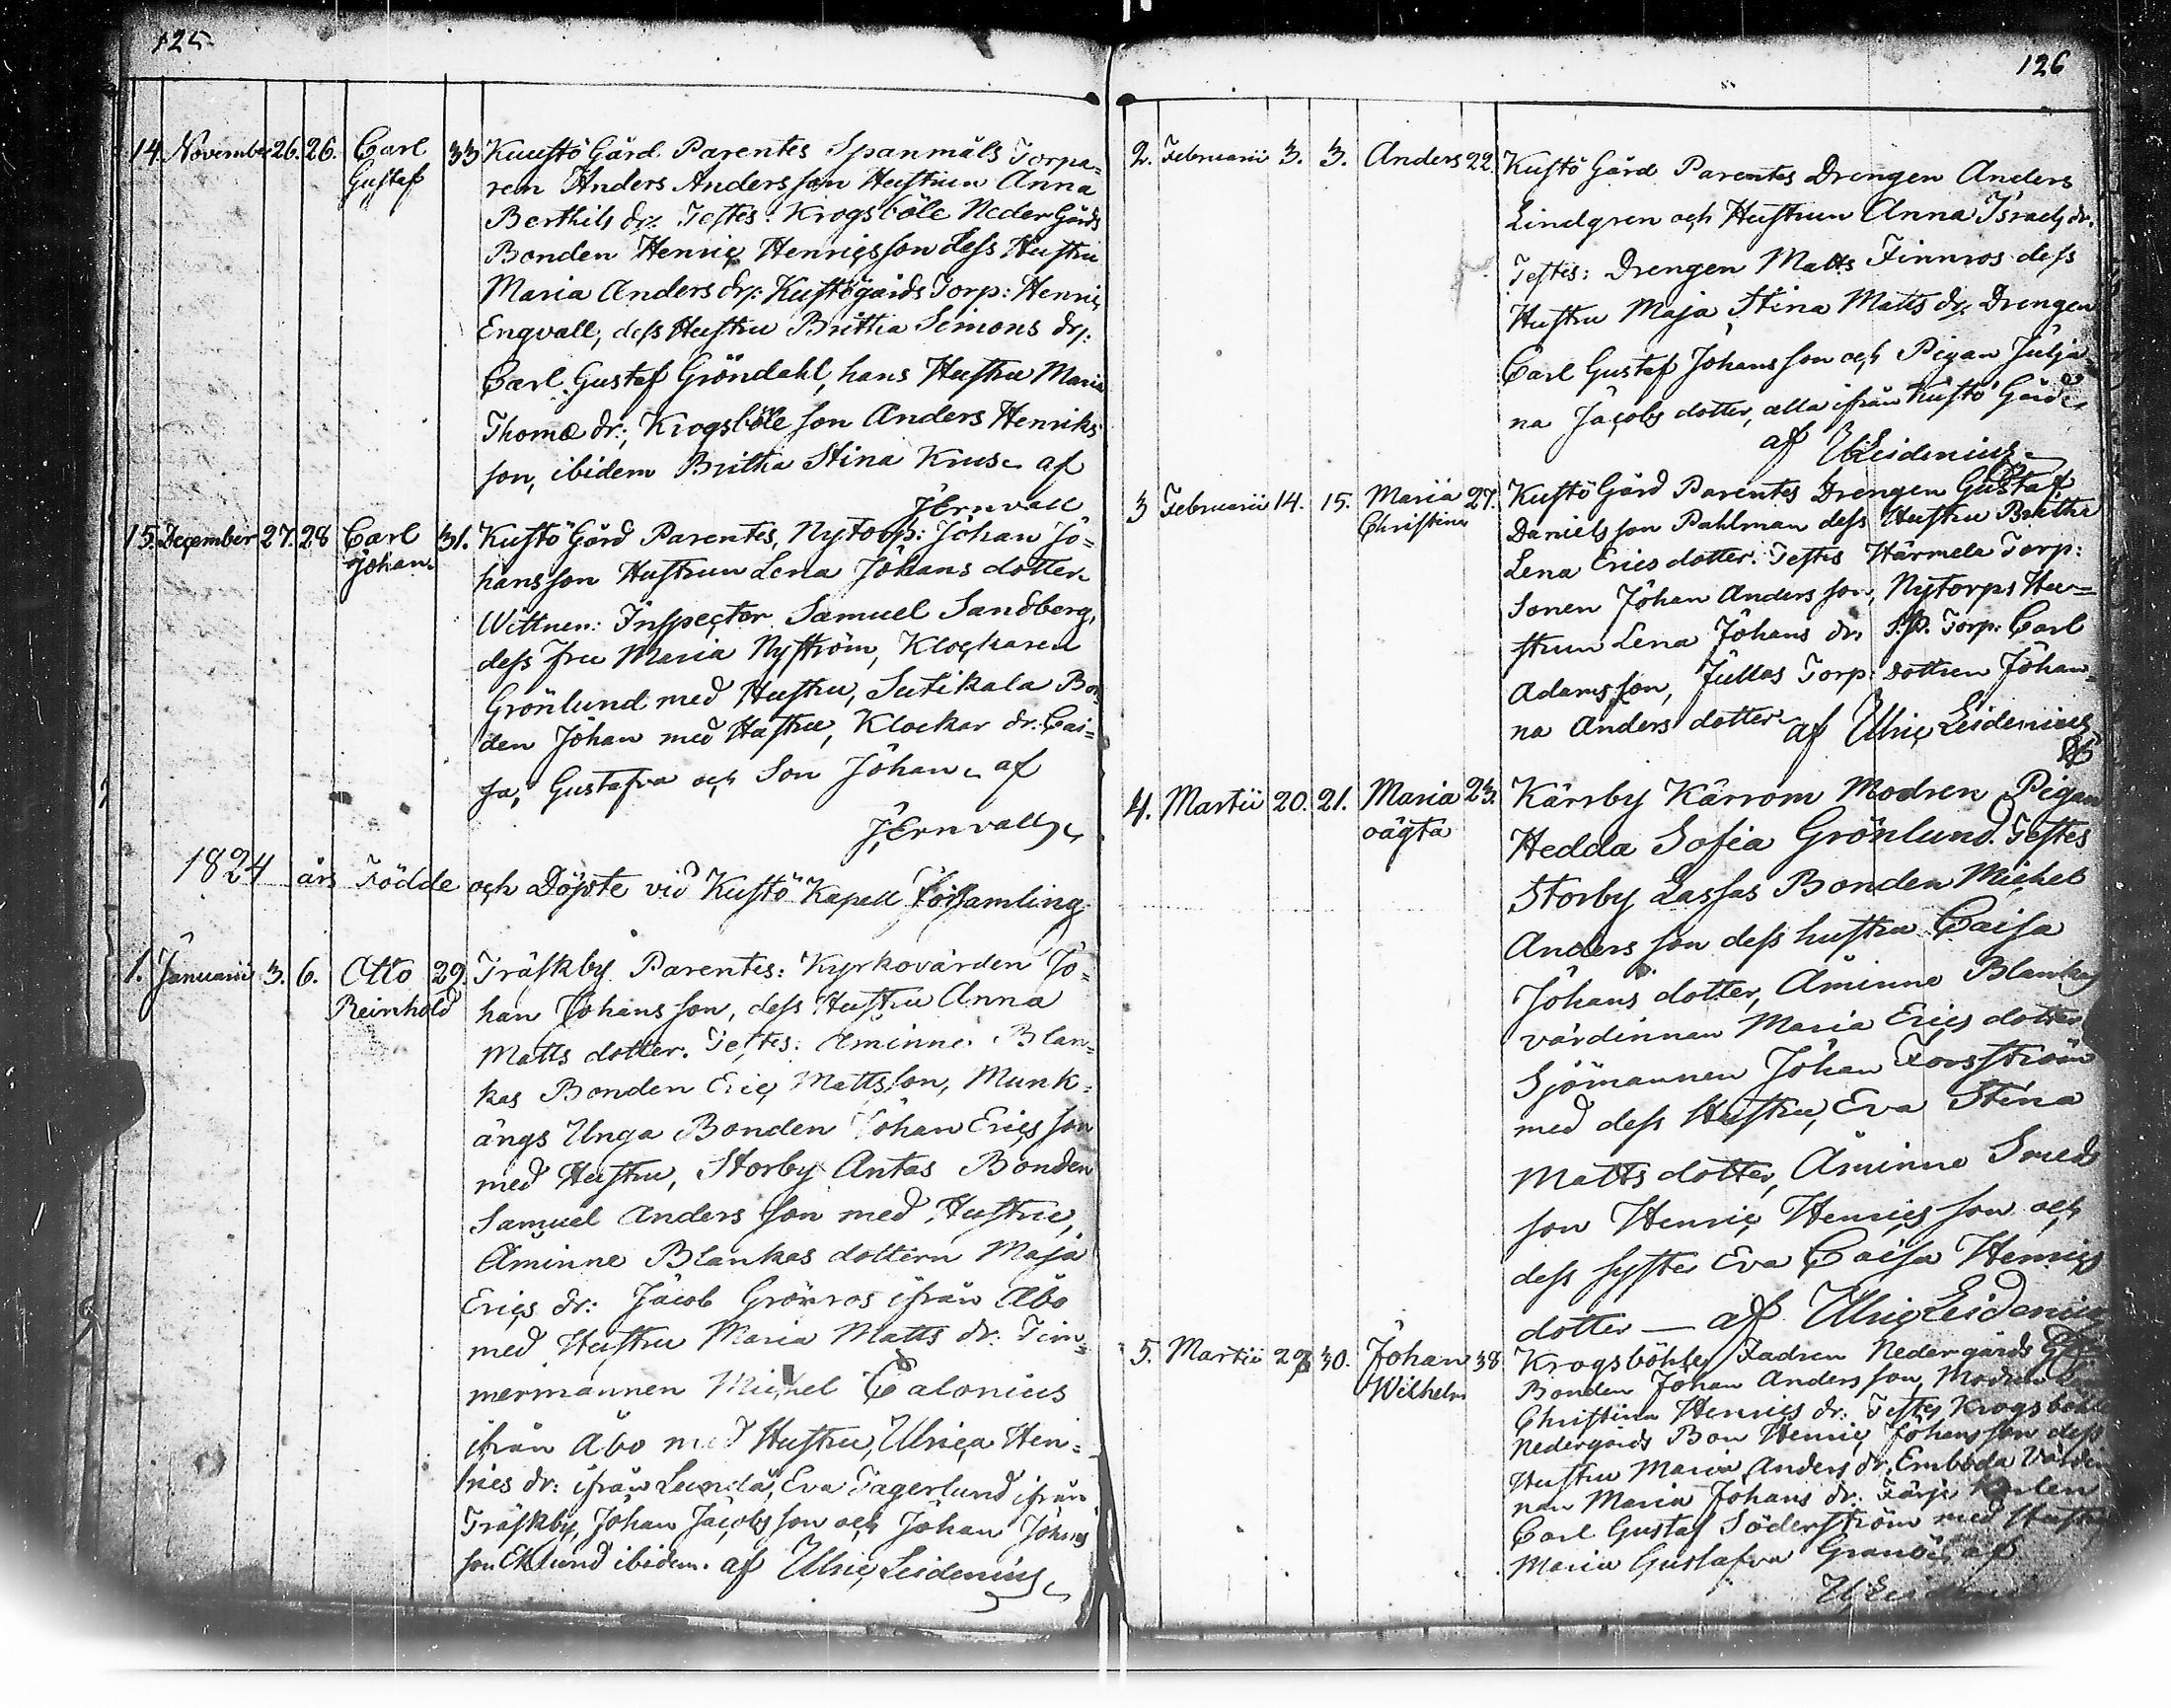 125
14. November 26. 26. Carl 33 Kuustö Gård Parentes Spanmåls Torpa=
Gustaf ren Anders Andersson Hustrun Anna
Berthils dr: Testes: Krogsböle Neder Gårds
Bonden Henric Henricsson dess Hustru
Maria Anders dr: Kustögårds Torp: Henric
Engvall, dess Hustru Britha Simons dr:
Carl Gustaf Gröndahl, hans Hustru Maria
Thomæ dr:, Krogsböle son Anders Henriks
son, ibidem Britha Stina Kruse af
J Ernvall
15. December 27. 28 Carl 31. Kustö Gård Parentes, Nytorp: Johan Jo=
Johan hansson Hustrun Lena Johans dotter
Wittnen: Inspector Samuel Sandberg,
dess fru Maria Nyström, Klockaren
Grönlund med Hustru, Sutikala Bon
den Johan med Hustru, Klockar dr: Cai=
sa, Gustafva och Son Johan af
J, Ernvall
1824 års Födde och Döpte vid Kustö Kapell Församling
1. Januarii 3. 6. Otto 29. Träskby Parentes: Kyrkovärden Jo=
Reinhold han Johansson, dess Hustru Anna
Matts dotter. Testes: Åminne Blan=
kas Bonden Eric Mattsson, Munk=
ängs Unga Bonden Johan Ericsson
med Hustru, Storby Antas Bonden
Samuel Andersson med Hustru,
Åminne Blankas dottern Maja
Erics dr: Jacob Grönros ifrån Åbo
med Hustru Maria Matts dr: Tim=
mermannen Michel Calonius
ifrån Åbo med Hustru, Ulrica Hen=
rics dr: ifrån Lundå, Eva Fagerlund ifrån
Träskby, Johan Jacobsson och Johan Johans
son Eklund ibidem. af Ulric Leidenius
126
2. Februarii 3. 3. Anders 22. Kustö Gård Parentes Drengen Anders
Lindgren och Hustrun Anna Israels dr.
Testes: Drengen Matts Finnros dess
Hustru Maja Stina Matts dr: Drengen
Carl Gustaf Johansson och Pigan Julja=
na Jacobs dotter, alla ifrån Kustö Gård
af U Leidenius
3 Februarii 14. 15. Maria 27. Kustö Gård Parentes Drengen Gustaf
Christina Danielsson Pahlman dess Hustru Britha
Lena Erics dotter. Testes Härmela Torp:
Sonen Johan Andersson, Nytorps Hu=
strun Lena Johans dr, S.P. Torp: Carl
Adamsson, Jullas Torp: dottren Johan=
na Anders dotter af Ulric Leidenius
4. Martii 20. 21. Maria 23. Kärrby Kärrom Modren Pigan
oägta Hedda Sofia Grönlund. Testes
Storby Lassas Bonden Michel
Anders son dess hustru Caisa
Johans dotter, Åminne Blankas
värdinnan Maria Erics dotter
Sjömannen Johan Forsström
med dess Hustru, Eva Stina
Matts dotter, Åminne Smeds
son Henric Henrics son och
dess syster Eva Caisa Henrics
dotter — af Ulric Leidenius
5. Martii 28 30. Johan 38 Krogsböhle Fadren Nedergårds
Wilhelm Bonden Johan Andersson, Modren
Christina Henrics dr: Testes Krogsböhle
Nedergårds Bon Henric Johansson dess
Hustru Maria Anders dr, Emboda Värdin
nan Maria Johans dr. Färje Karlen
Carl Gustaf Söderström med Hustru
Maria Gustafva Granö af
U Leidenius